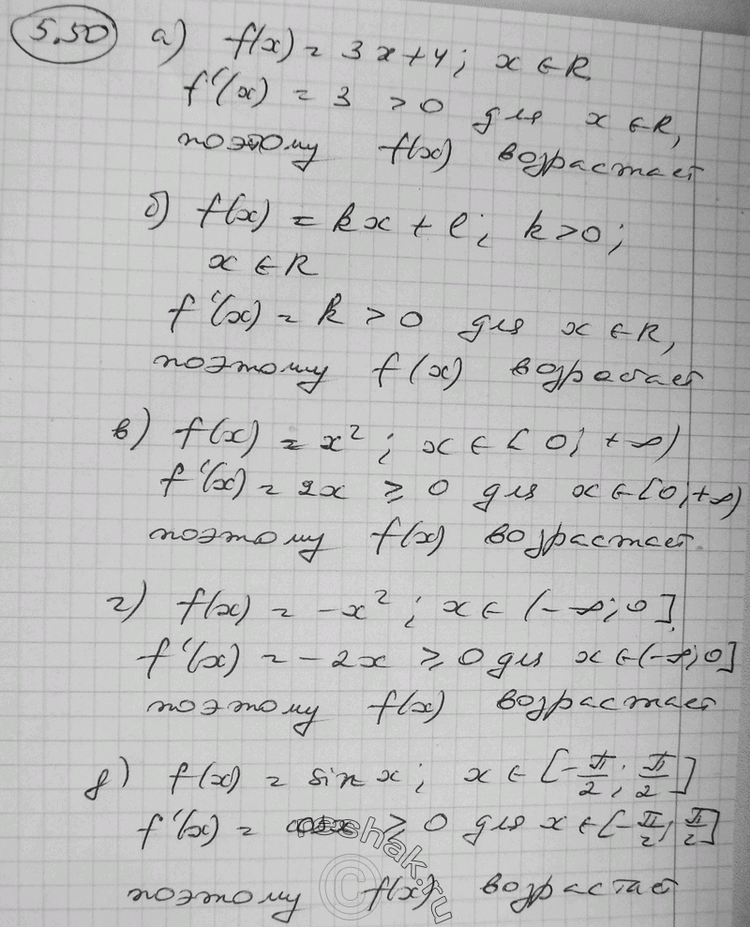 5.50 а) f(x) = 3x+4; x ∈ R.
f'(x) = 3 > 0 для x ∈ R,
поэтому f(x) возрастает
б) f(x) = kx + l; k>0;
x ∈ R
f'(x) = k > 0 для x ∈ R,
поэтому f(x) возрастает
в) f(x) = x²; x ∈ [0; +∞)
f'(x) = 2x ≥ 0 для x ∈ [0; +∞)
поэтому f(x) возрастает
г) f(x) = -x²; x ∈ (-∞; 0]
f'(x) = -2x ≥ 0 для x ∈ (-∞; 0]
поэтому f(x) возрастает
д) f(x) = sin x; x ∈ [-π/2; π/2]
f'(x) = cos x ≥ 0 для x ∈ [-π/2; π/2]
поэтому f(x) возрастает
©reshak.ru